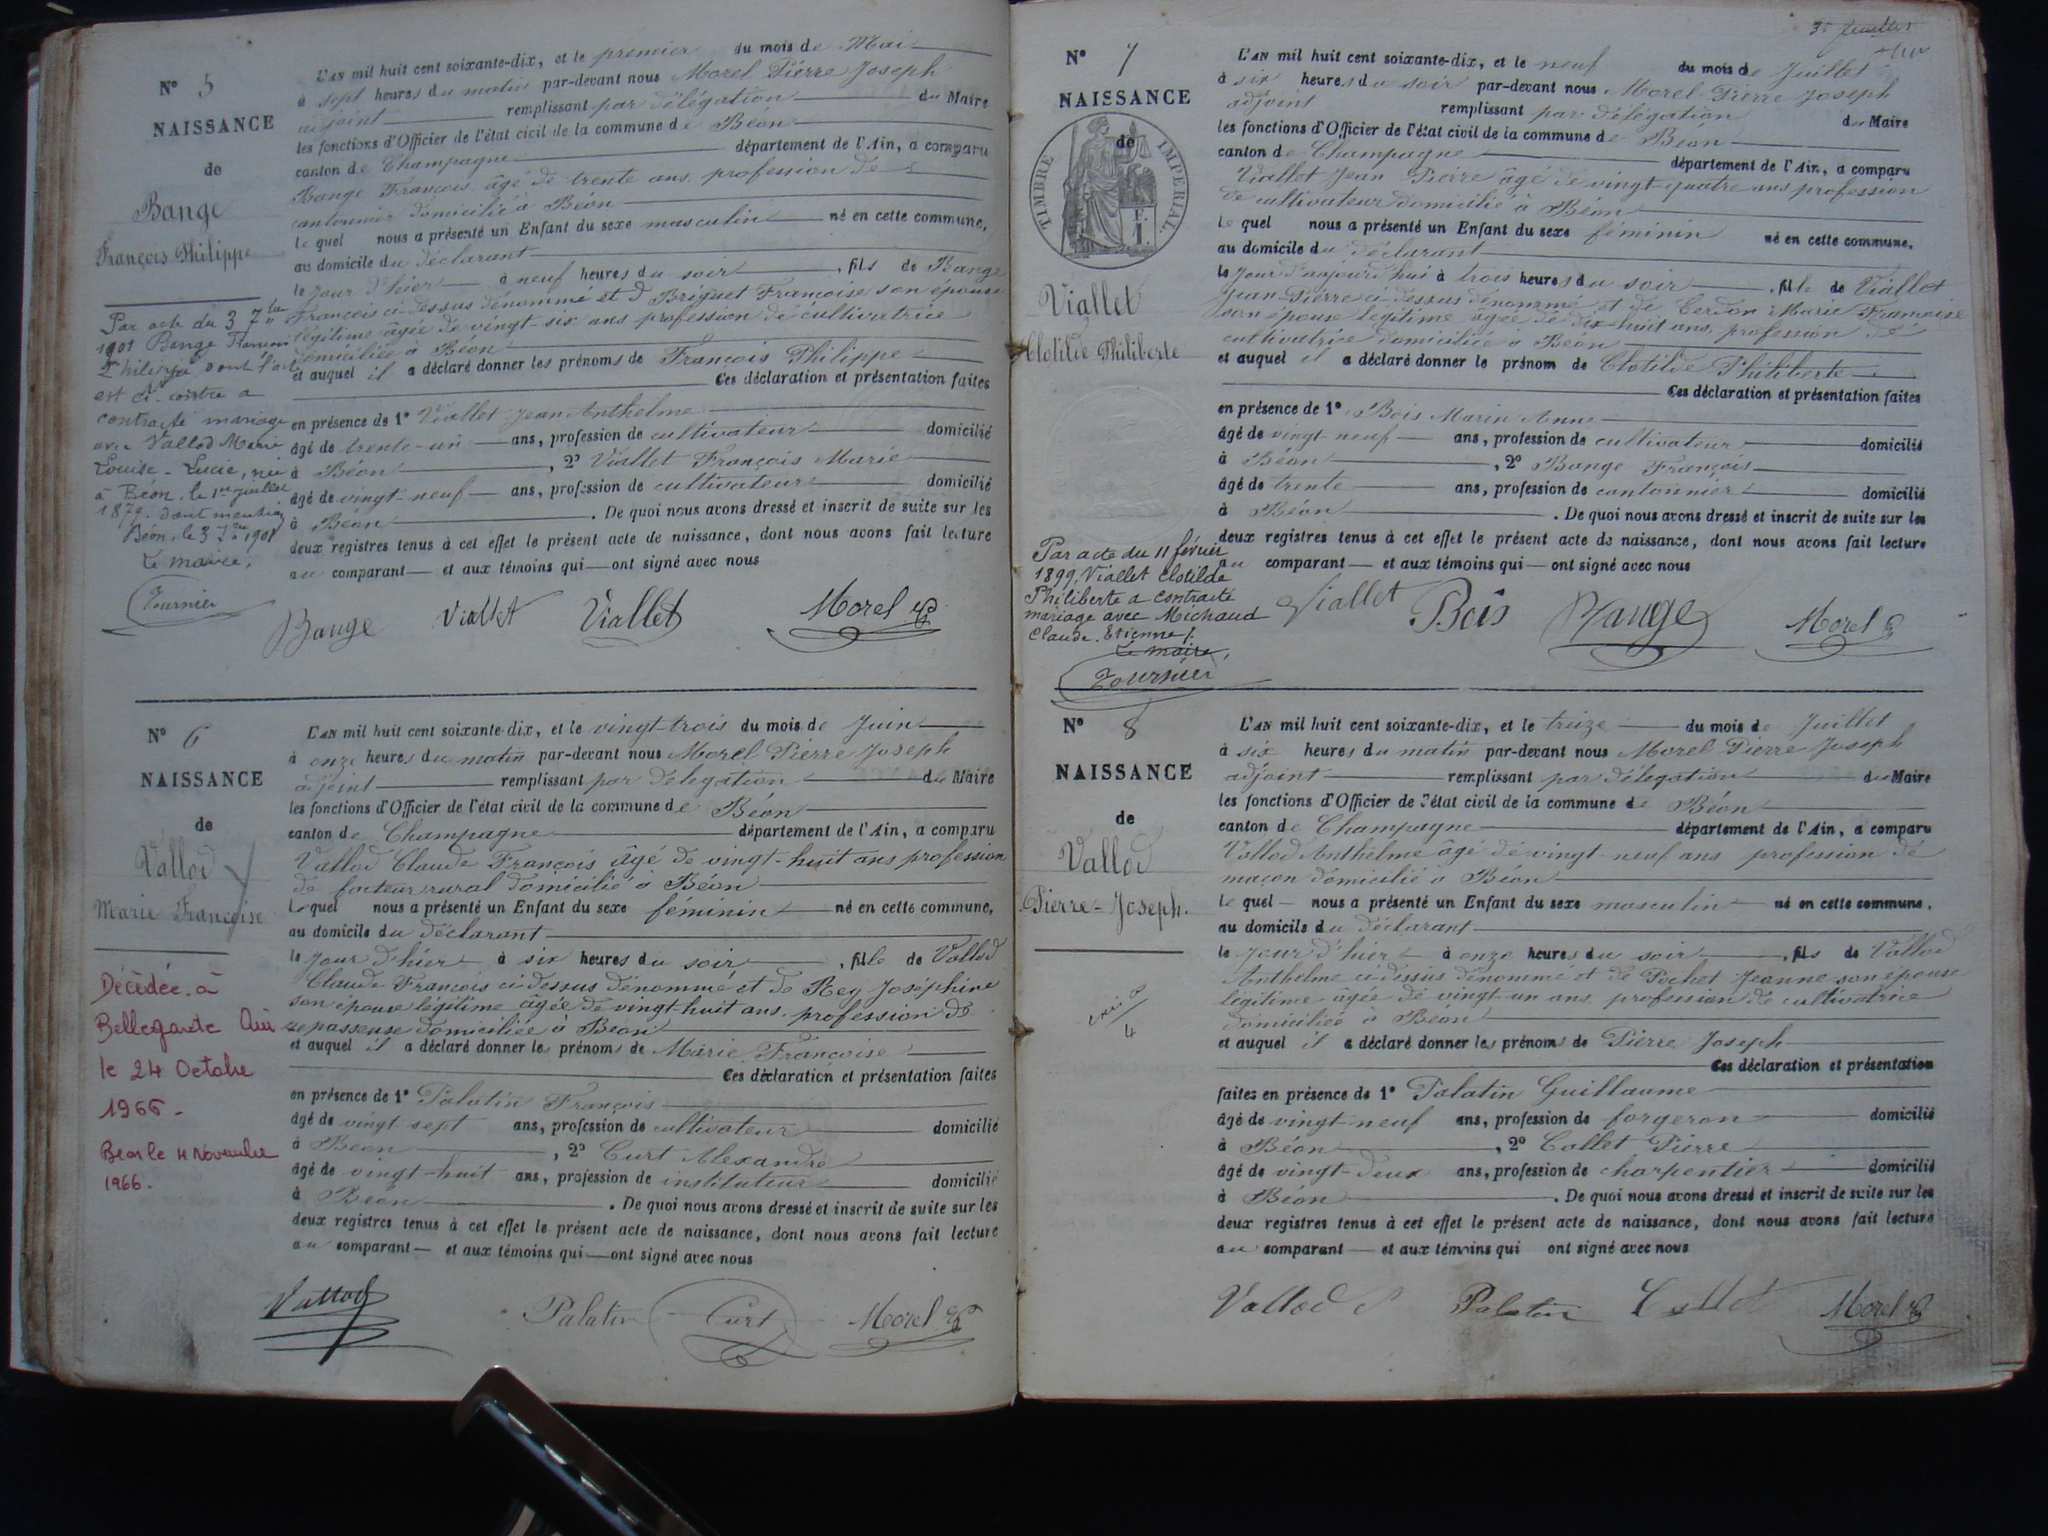 N° 5
NAISSANCE
de
Bange
François Philippe
Par acte du 3 7bre
1901 Bange François
Philippe dont l'acte
est ci-contre a
contracté mariage
avec Vallod Marie
Louise-Lucie, née
à Béon, le 1er juillet
1879. dont mention
Béon, le 3 7bre 1901
Le maire,
Fournier
L'AN mil huit cent soixante-dix, et le premier du mois de Mai
à sept heures du matin par-devant nous Morel Pierre Joseph
adjoint remplissant par délégation du Maire
les fonctions d'Officier de l'état civil de la commune de Béon
canton de Champagne département de l'Ain, a comparu
Bange François âgé de trente ans profession de
cantonnier domicilié à Béon
lequel nous a présenté un Enfant du sexe masculin né en cette commune,
au domicile du déclarant
le jour d'hier à neuf heures du soir, fils de Bange
François ci-dessus dénommé et d Briquet Françoise son épouse
légitime âgée de vingt-six ans profession de cultivatrice
domiciliée à Béon
et auquel il a déclaré donner les prénoms de François Philippe
Ces déclaration et présentation faites
en présence de 1° Viallet Jean Anthelme
âgé de trente-un ans, profession de cultivateur domicilié
à Béon, 2° Viallet François Marie
âgé de vingt-neuf ans, profession de cultivateur domicilié
à Béon. De quoi nous avons dressé et inscrit de suite sur les
deux registres tenus à cet effet le présent acte de naissance, dont nous avons fait lecture
au comparant et aux témoins qui ont signé avec nous
Bange Viallet Viallet Morel
N° 6
NAISSANCE
de
Vallod
Marie Françoise
Décédée à
Bellegarde Ain
le 24 Octobre
1966-
Béon le 4 Novembre
1966.
L'AN mil huit cent soixante-dix, et le vingt-trois du mois de Juin
à onze heures du matin par-devant nous Morel Pierre Joseph
adjoint remplissant par délégation du Maire
les fonctions d'Officier de l'état civil de la commune de Béon
canton de Champagne département de l'Ain, a comparu
Vallod Claude François âgé de vingt-huit ans profession
de facteur rural domicilié à Béon
lequel nous a présenté un Enfant du sexe féminin né en cette commune,
au domicile du déclarant
le jour d'hier à six heures du soir, fille de Vallod
Claude François ci-dessus dénommé et de Rey Joséphine
son épouse légitime âgée de vingt-huit ans profession de
repasseuse domiciliée à Béon
et auquel il a déclaré donner les prénoms de Marie Françoise
Ces déclaration et présentation faites
en présence de 1° Palatin François
âgé de vingt sept ans, profession de cultivateur domicilié
à Béon, 2° Curt Alexandre
âgé de vingt-huit ans, profession de instituteur domicilié
à Béon. De quoi nous avons dressé et inscrit de suite sur les
deux registres tenus à cet effet le présent acte de naissance, dont nous avons fait lecture
au comparant et aux témoins qui ont signé avec nous
Vallod Palatin Curt Morel
N° 7
NAISSANCE
de
TIMBRE IMPERIAL.
Viallet
Clotilde Philiberte
Par acte du 11 février
1899, Viallet Clotilde
Philiberte a contracté
mariage avec Michaud
Claude. Etienne.
Le maire,
Fournier
3e feuillet
L'AN mil huit cent soixante-dix, et le neuf du mois de Juillet
à six heures du soir par-devant nous Morel Pierre Joseph
adjoint remplissant par délégation du Maire
les fonctions d'Officier de l'état civil de la commune de Béon
canton de Champagne département de l'Ain, a comparu
Viallet Jean Pierre âgé de vingt-quatre ans profession
de cultivateur domicilié à Béon
lequel nous a présenté un Enfant du sexe féminin né en cette commune,
au domicile du déclarant
le jour d'aujourd'hui à trois heures du soir, fille de Viallet
Jean-Pierre ci-dessus dénommé et de Cerdon Marie Françoise
son épouse légitime âgée de dix-huit ans, profession de
cultivatrice domiciliée à Béon
et auquel il a déclaré donner le prénom de Clotilde Philiberte
Ces déclaration et présentation faites
en présence de 1° Bois Marin Anne
âgé de vingt-neuf ans, profession de cultivateur domicilié
à Béon, 2° Bange François
âgé de trente ans, profession de cantonnier domicilié
à Béon. De quoi nous avons dressé et inscrit de suite sur les
deux registres tenus à cet effet le présent acte de naissance, dont nous avons fait lecture
au comparant et aux témoins qui ont signé avec nous
Viallet Bois Bange Morel
N° 8
NAISSANCE
de
Vallod
Pierre-Joseph.
L'AN mil huit cent soixante-dix, et le treize du mois de Juillet
à six heures du matin par-devant nous Morel Pierre Joseph
adjoint remplissant par délégation du Maire
les fonctions d'Officier de l'état civil de la commune de Béon
canton de Champagne département de l'Ain, a comparu
Vallod Anthelme âgé de vingt-neuf ans profession de
maçon domicilié à Béon
lequel nous a présenté un Enfant du sexe masculin né en cette commune,
au domicile du déclarant
le jour d'hier à onze heures du soir, fils de Vallod
Anthelme ci-dessus dénommé et de Pochet Jeanne son épouse
légitime âgée de vingt-un ans profession de cultivatrice
domiciliée à Béon
et auquel il a déclaré donner les prénoms de Pierre Joseph
Ces déclaration et présentation
faites en présence de 1° Palatin Guillaume
âgé de vingt-neuf ans, profession de forgeron domicilié
à Béon, 2° Collet Pierre
âgé de vingt-deux ans, profession de charpentier domicilié
à Béon. De quoi nous avons dressé et inscrit de suite sur les
deux registres tenus à cet effet le présent acte de naissance, dont nous avons fait lecture
au comparant et aux témoins qui ont signé avec nous
Vallod Palatin Collet Morel